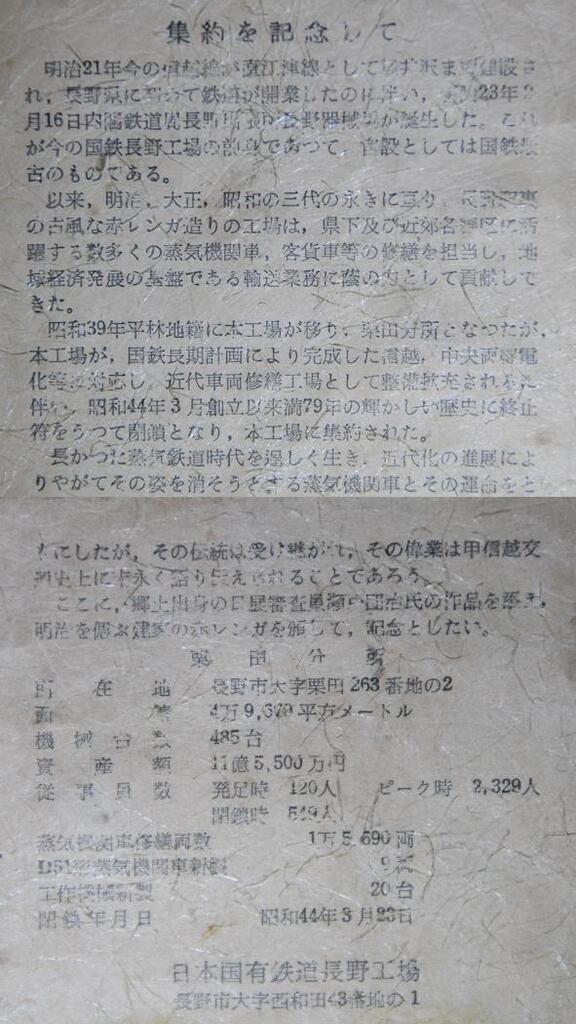 集約を記念して
明治21年今の信越線が直江津線として軽井沢まで建設さ
れ，長野県に初めて鉄道が開業したのに伴い，23年
月16日内閣鉄道局長野器械場が誕生した。これ
が今の国鉄長野工場の前身であつて，官設としては国鉄最
古のものである。
以来，明治，大正，昭和の三代の永きに亘り，長野
の古風な赤レンガ造りの工場は，県下及び近郊各線区に活
躍する数多くの蒸気機関車，客貨車等の修繕を担当し，地
域経済発展の基盤である輸送業務に蔭の力として貢献して
きた。
昭和39年平林地籍に本工場が移り，栗田分所となつたが，
本工場が，国鉄長期計画により完成した信越，中央両線電
化等に対応し，近代車両修繕工場として整備拡充されるに
伴い，昭和44年3月創立以来満79年の輝かしい歴史に終止
符をうつて閉鎖となり，本工場に集約された。
長かつた蒸気鉄道時代を逞しく生き，近代化の進展によ
りやがてその姿を消そうとする蒸気機関車とその運命をと
もにしたが，その伝統は受け継がれ，その偉業は甲信越交
通史上に末永く語り伝えられることであろう。
ここに，郷土出身の日展審査員瀬戸団治氏の作品を添え，
明治を偲ぶ建家の赤レンガを頒して，記念としたい。
栗田分所
所在地 長野市大字栗田263番地の2
面積 4万9,379平方メートル
機械台数 485台
資産額 11億5,500万円
従事員数 発足時 120人 ピーク時 2,329人
閉鎖時 549人
蒸気機関車修繕両数 1万5,690両
D51形蒸気機関車新製 9両
工作機械新製 20台
閉鎖年月日 昭和44年3月23日
日本国有鉄道長野工場
長野市大字西和田43番地の1